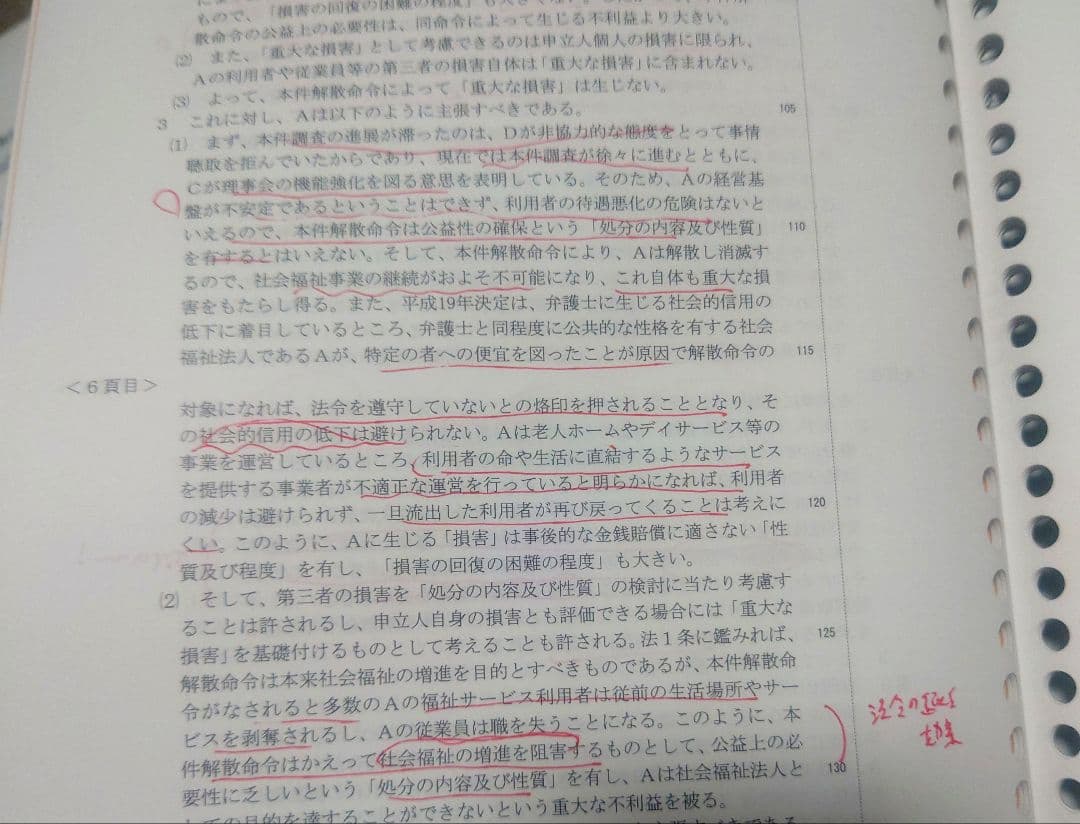 もので、「損害の回復の困難の程度」も
散命令の公益上の必要性は、同命令によって生じる不利益より大きい。
⑵ また、「重大な損害」として考慮できるのは申立人個人の損害に限られ、
Aの利用者や従業員等の第三者の損害自体は「重大な損害」に含まれない。
⑶ よって、本件解散命令によって「重大な損害」は生じない。
3 これに対し、Aは以下のように主張すべきである。 105
⑴ まず、本件調査の進展が滞ったのは、Dが非協力的な態度をとって事情
聴取を拒んでいたからであり、現在では本件調査が徐々に進むとともに、
Cが理事会の機能強化を図る意思を表明している。そのため、Aの経営基
盤が不安定であるということはできず、利用者の待遇悪化の危険はないと
いえるので、本件解散命令は公益性の確保という「処分の内容及び性質」 110
を有するとはいえない。そして、本件解散命令により、Aは解散し消滅す
るので、社会福祉事業の継続がおよそ不可能になり、これ自体も重大な損
害をもたらし得る。また、平成19年決定は、弁護士に生じる社会的信用の
低下に着目しているところ、弁護士と同程度に公共的な性格を有する社会
福祉法人であるAが、特定の者への便宜を図ったことが原因で解散命令の 115
＜6頁目＞
対象になれば、法令を遵守していないとの烙印を押されることとなり、そ
の社会的信用の低下は避けられない。Aは老人ホームやデイサービス等の
事業を運営しているところ、利用者の命や生活に直結するようなサービス
を提供する事業者が不適正な運営を行っていると明らかになれば、利用者
の減少は避けられず、一旦流出した利用者が再び戻ってくることは考えに 120
くい。このように、Aに生じる「損害」は事後的な金銭賠償に適さない「性
質及び程度」を有し、「損害の回復の困難の程度」も大きい。
⑵ そして、第三者の損害を「処分の内容及び性質」の検討に当たり考慮す
ることは許されるし、申立人自身の損害とも評価できる場合には「重大な
損害」を基礎付けるものとして考えることも許される。法1条に鑑みれば、 125
解散命令は本来社会福祉の増進を目的とすべきものであるが、本件解散命
令がなされると多数のAの福祉サービス利用者は従前の生活場所やサー
ビスを剥奪されるし、Aの従業員は職を失うことになる。このように、本
件解散命令はかえって社会福祉の増進を阻害するものとして、公益上の必 130
要性に乏しいという「処分の内容及び性質」を有し、Aは社会福祉法人と
しての目的を達することができないという重大な不利益を被る。
法令の